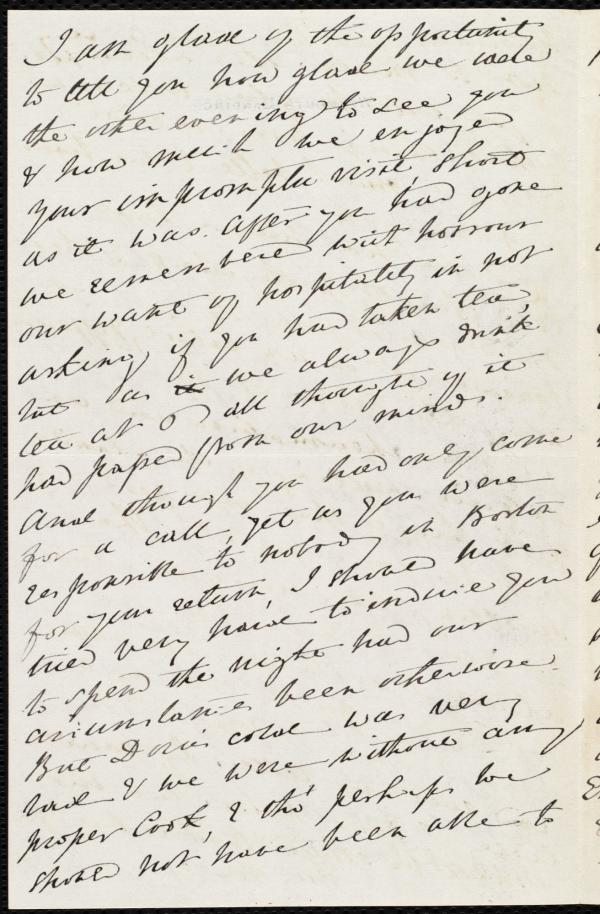 I am glad of the opportunity
to tell you how glad we were
the other evening to see you
& how much we enjoyed
your impromptu visit, short
as it was. After you had gone
we remembered with horrour
our want of hospitality in not
asking if you had taken tea,
but as it we always drink
tea at 6 all thought of it
had passed from our minds.
And though you had only come
for a call, yet as you were
responsible to nobody in Boston
for your return, I should have
tried very hard to induce you
to spend the night had our
circumstances been otherwise.
But Dora's cold was very
bad & we were without any
proper Cook, & tho' perhaps we
should not have been able to